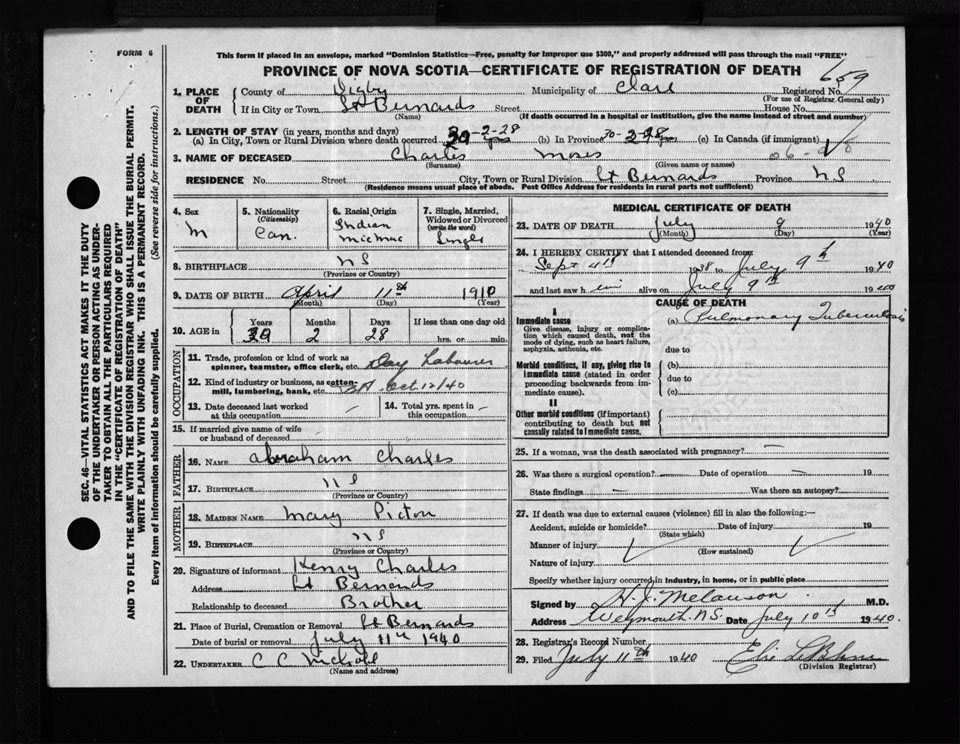 FORM 6
This form if placed in an envelope, marked "Dominion Statistics—Free, penalty for improper use $300," and properly addressed will pass through the mail "FREE"
PROVINCE OF NOVA SCOTIA—CERTIFICATE OF REGISTRATION OF DEATH
659
1. PLACE OF DEATH
County of Digby Municipality of Clare Registered No.
(For use of Registrar General only)
If in City or Town St Bernards Street House No.
(Name) (If death occurred in a hospital or institution, give the name instead of street and number)
2. LENGTH OF STAY (in years, months and days)
(a) In City, Town or Rural Division where death occurred 30-2-28 (b) In Province 30-2-28 (c) In Canada (if immigrant)
3. NAME OF DECEASED Charles Moses
(Surname) (Given name or names)
RESIDENCE No. Street City, Town or Rural Division St Bernards Province NS
(Residence means usual place of abode. Post Office Address for residents in rural parts not sufficient)
4. Sex M
5. Nationality (Citizenship) Can.
6. Racial Origin Indian Micmac
7. Single, Married, Widowed or Divorced (write the word) Single
8. BIRTHPLACE NS
(Province or Country)
9. DATE OF BIRTH April 11th 1910
(Month) (Day) (Year)
10. AGE in Years Months Days If less than one day old
30 2 28 hrs. or min.
OCCUPATION
11. Trade, profession or kind of work as spinner, teamster, office clerk, etc. Day Labourer
12. Kind of industry or business, as cotton-mill, lumbering, bank, etc. Oct 12/40
13. Date deceased last worked at this occupation —
14. Total yrs. spent in this occupation —
15. If married give name of wife or husband of deceased
FATHER
16. NAME Abraham Charles
17. BIRTHPLACE NS
(Province or Country)
MOTHER
18. MAIDEN NAME Mary Picton
19. BIRTHPLACE NS
(Province or Country)
20. Signature of informant Henry Charles
Address St Bernards
Relationship to deceased Brother
21. Place of Burial, Cremation or Removal St Bernards
Date of burial or removal July 11th 1940
22. UNDERTAKER C C Nichol
(Name and address)
MEDICAL CERTIFICATE OF DEATH
23. DATE OF DEATH July 9 1940
(Month) (Day) (Year)
24. I HEREBY CERTIFY that I attended deceased from
Sept 4th 1938 to July 9th 1940
and last saw him alive on July 9th 1940
CAUSE OF DEATH
I
Immediate cause
Give disease, injury or complication which caused death, not the mode of dying, such as heart failure, asphyxia, asthenia, etc.
(a) Pulmonary Tuberculosis
due to
Morbid conditions, if any, giving rise to immediate cause (stated in order proceeding backwards from immediate cause).
(b)
due to
(c)
II
Other morbid conditions (if important) contributing to death but not causally related to immediate cause.
25. If a woman, was the death associated with pregnancy? —
26. Was there a surgical operation? — Date of operation — 19
State findings — Was there an autopsy?
27. If death was due to external causes (violence) fill in also the following:—
Accident, suicide or homicide? Date of injury 19
(State which)
Manner of injury
(How sustained)
Nature of injury
Specify whether injury occurred in industry, in home, or in public place
Signed by H. J. Melanson M.D.
Address Weymouth. N.S. Date July 10th 1940.
28. Registrar's Record Number
29. Filed July 11th 1940
(Division Registrar)
SEC. 46—VITAL STATISTICS ACT MAKES IT THE DUTY
OF THE UNDERTAKER OR PERSON ACTING AS UNDERTAKER
TO OBTAIN ALL THE PARTICULARS REQUIRED
IN THE "CERTIFICATE OF REGISTRATION OF DEATH"
AND TO FILE THE SAME WITH THE DIVISION REGISTRAR WHO SHALL ISSUE THE BURIAL PERMIT.
WRITE PLAINLY WITH UNFADING INK. THIS IS A PERMANENT RECORD.
Every item of information should be carefully supplied. (See reverse side for instructions.)